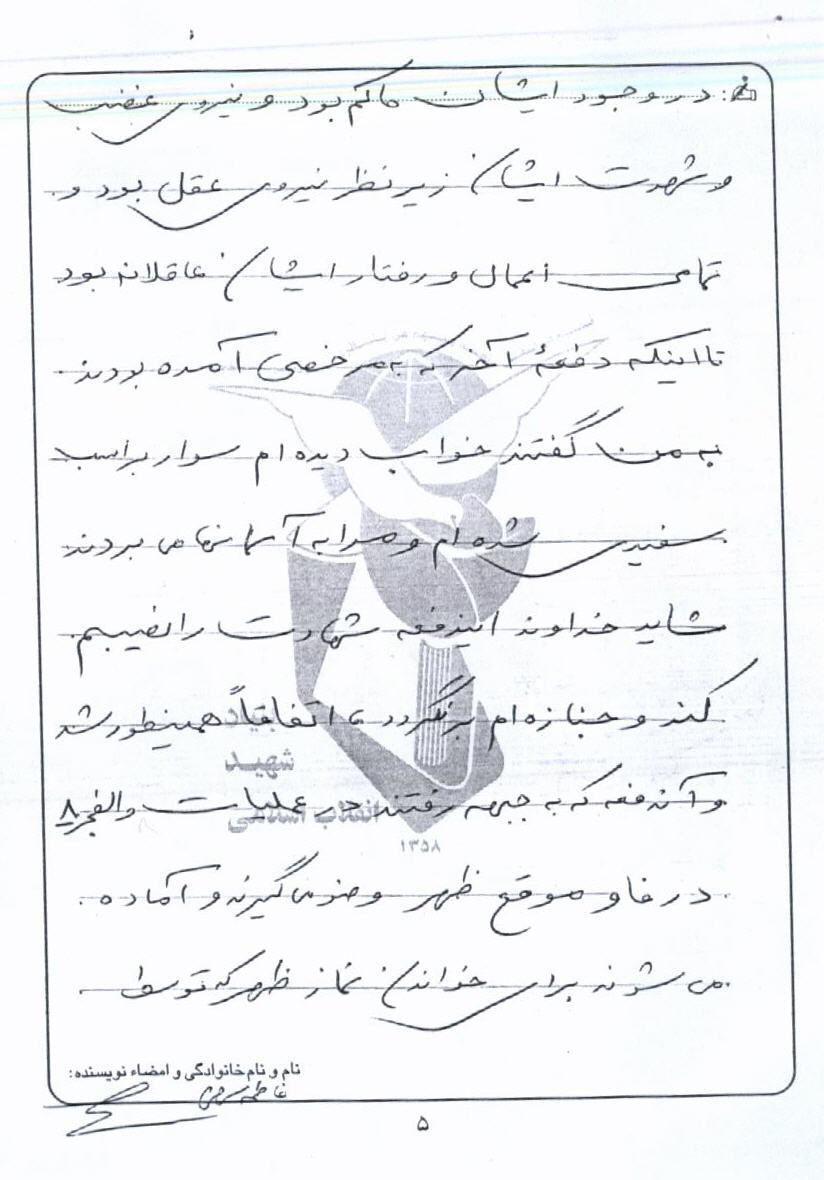 در وجود ایشان حاکم بود و نیروی غضب
و شهوت ایشان زیر نظر نیروی عقل بود و
تمامی اعمال و رفتار ایشان عاقلانه بود
تا اینکه دفعهٔ آخر که به مرخصی آمده بودند
به من گفتند خواب دیده ام سوار بر اسب
سفیدی شده ام و مرا به آسمانها می بردند
شاید خداوند ایندفعه شهادت را نصیبم
کند و جنازه ام برنگردد، اتفاقاً همینطور شد
و آندفعه که به جبهه رفتند در عملیات والفجر ۸
در فاو موقع ظهر وضو می گیرند و آماده
می شوند برای خواندن نماز ظهر که توسط
بنیاد
شهید
انقلاب اسلامی
۱۳۵۸
نام و نام خانوادگی و امضاء نویسنده:
فاطمه
۵